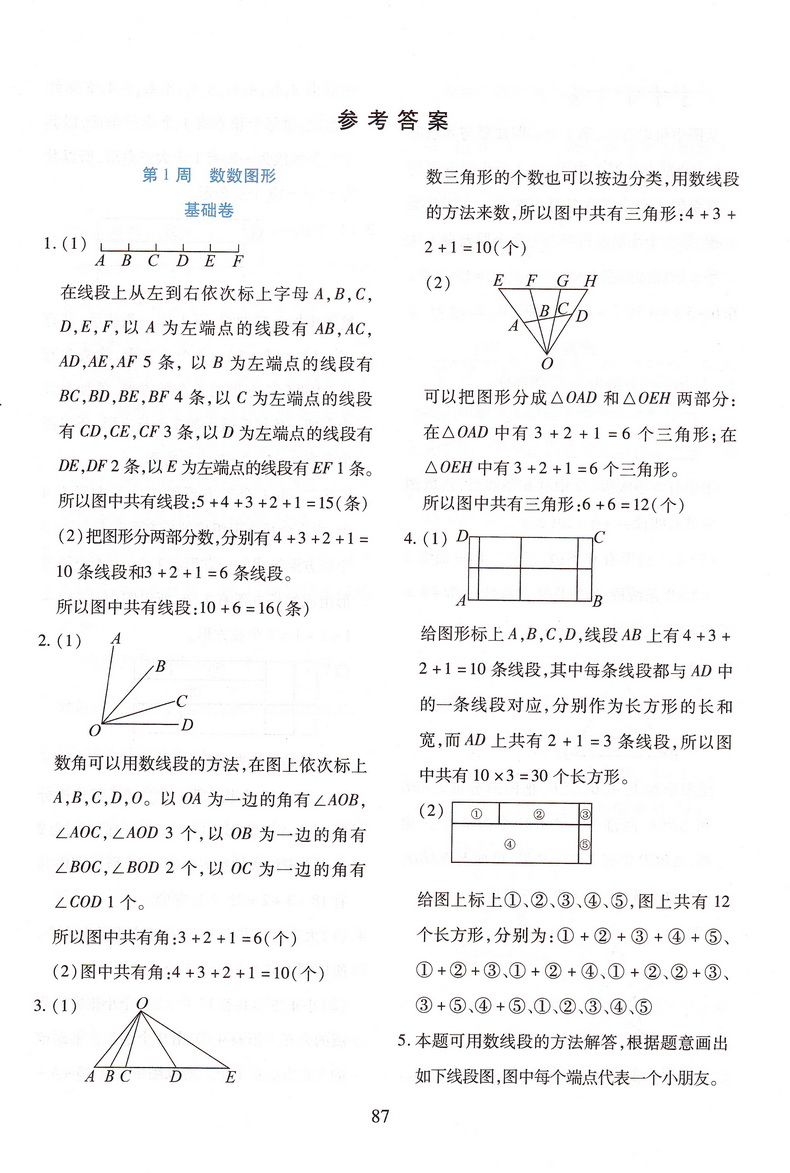 参考答案
第1周 数数图形
基础卷
1.(1)
A B C D E F
在线段上从左到右依次标上字母A,B,C,
D,E,F,以A为左端点的线段有AB,AC,
AD,AE,AF 5条, 以B为左端点的线段有
BC,BD,BE,BF 4条,以C为左端点的线段
有CD,CE,CF 3条,以D为左端点的线段有
DE,DF 2条,以E为左端点的线段有EF 1条。
所以图中共有线段:5+4+3+2+1=15(条)
(2)把图形分两部分数,分别有4+3+2+1=
10条线段和3+2+1=6条线段。
所以图中共有线段:10+6=16(条)
2.(1)
A
B
C
O D
数角可以用数线段的方法,在图上依次标上
A,B,C,D,O。以OA为一边的角有∠AOB,
∠AOC,∠AOD 3个,以OB为一边的角有
∠BOC,∠BOD 2个,以OC为一边的角有
∠COD 1个。
所以图中共有角:3+2+1=6(个)
(2)图中共有角:4+3+2+1=10(个)
3.(1)
O
A B C D E
数三角形的个数也可以按边分类,用数线段
的方法来数,所以图中共有三角形:4+3+
2+1=10(个)
(2)
E F G H
A B C D
O
可以把图形分成△OAD和△OEH两部分:
在△OAD中有3+2+1=6个三角形;在
△OEH中有3+2+1=6个三角形。
所以图中共有三角形:6+6=12(个)
4.(1)
D C
A B
给图形标上A,B,C,D,线段AB上有4+3+
2+1=10条线段,其中每条线段都与AD中
的一条线段对应,分别作为长方形的长和
宽,而AD上共有2+1=3条线段,所以图
中共有10×3=30个长方形。
(2)
① ② ③
④ ⑤
给图上标上①、②、③、④、⑤,图上共有12
个长方形,分别为:①+②+③+④+⑤、
①+②+③、①+②+④、①+②、②+③、
③+⑤、④+⑤、①、②、③、④、⑤
5.本题可用数线段的方法解答,根据题意画出
如下线段图,图中每个端点代表一个小朋友。
87